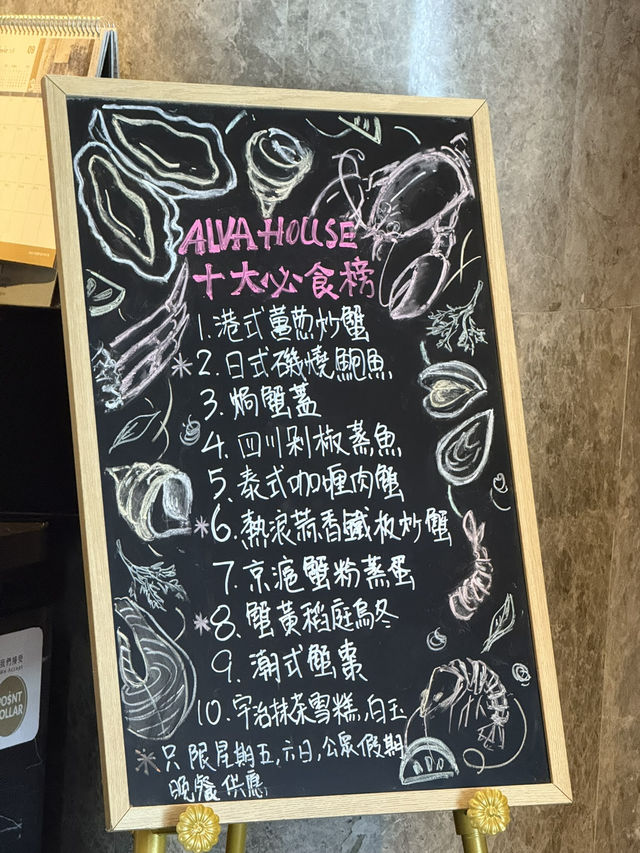 ALVA HOUSE
十大必食榜
1. 港式薑葱炒蟹
*2. 日式磯燒鮑魚
3. 焗蟹蓋
4. 四川剁椒蒸魚
5. 泰式咖喱肉蟹
*6. 熱浪蒜香鐵板炒蟹
7. 京滬蟹粉蒸蛋
*8. 蟹黃稻庭烏冬
9. 潮式蟹棗
10. 宇治抹茶雪糕,白玉
*只限星期五,六日,公眾假期
晚餐供應
09
我們接受
Accept
POINT
DOLLAR